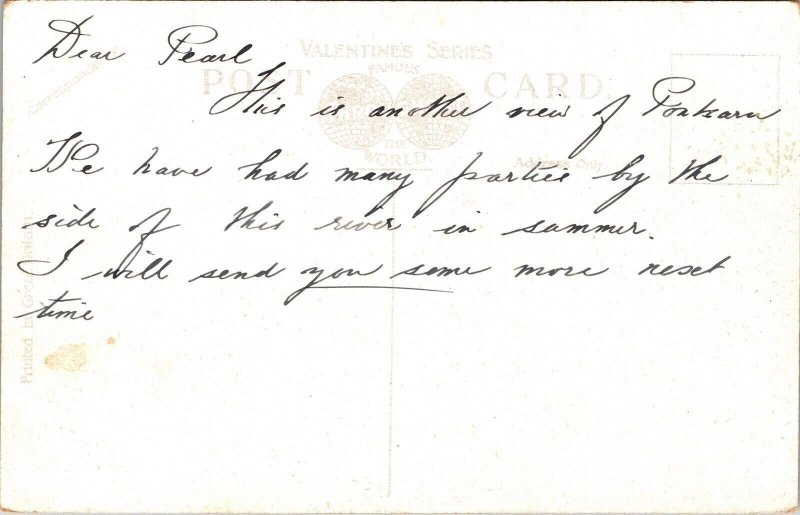 Dear Pearl
VALENTINE'S SERIES
FAMOUS
POST CARD.
THE
WORLD.
Correspondence.
Address Only.
This is another view of Pontcarn
We have had many parties by the
side of this river in summer.
I will send you some more next
time
Printed in Great Britain